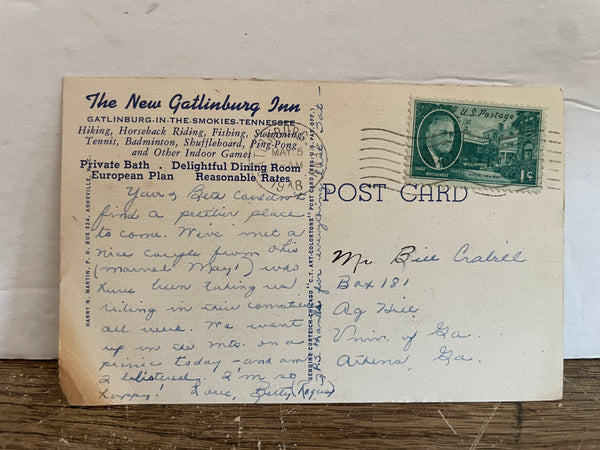 The New Gatlinburg Inn
GATLINBURG-IN-THE-SMOKIES-TENNESSEE
Hiking, Horseback Riding, Fishing, Swimming,
Tennis, Badminton, Shuffleboard, Ping-Pong
and Other Indoor Games
Private Bath Delightful Dining Room
European Plan Reasonable Rates
You & Bets couldn't
find a prettier place
to come. We've met a
nice couple from Ohio
(married May 1) who
have been taking us
riding in their convertible
all week. We went
up in the mts. on a
picnic today - and am
I blistered, I'm so
happy. Love, Betty (Rogers)
P.S. Thanks for everything
HARRY N. MARTIN, P. O. BOX 324, ASHEVILLE
GENUINE CURTEICH-CHICAGO "C.T. ART-COLORTONE" POST CARD (REG. U.S. PAT. OFF.)
POST CARD
MAY 6
1948
U.S. Postage
ROOSEVELT
1c
Mr. Bill Crabell
Box 181
Ag Hill
Univ. of Ga
Athens, Ga.